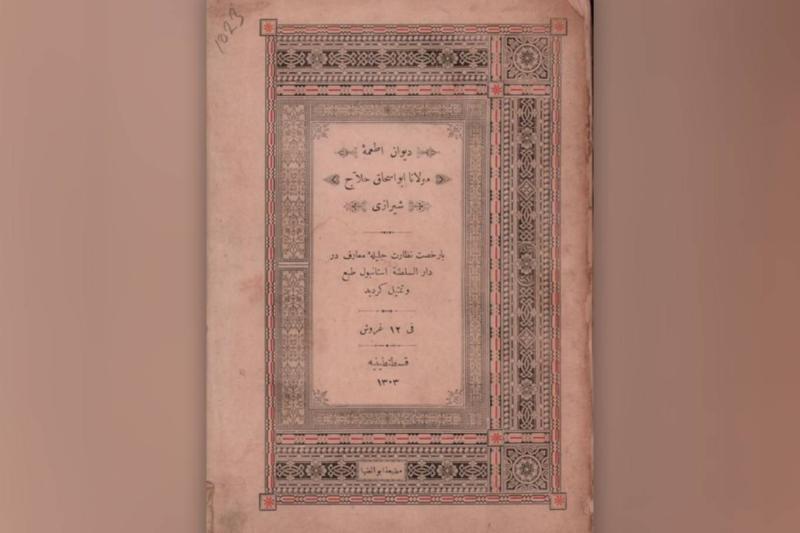 1023
ديوان اطعمهٔ
مولانا ابواسحاق حلاج
شيرازى
بارخصت نظارت جليلهٔ معارف در
دار السلطنهٔ استانبول طبع
و تمثيل كرديد
فى ١٢ غروش
قسطنطينيه
١٣٠٣
مطبعهٔ ابو الضيا